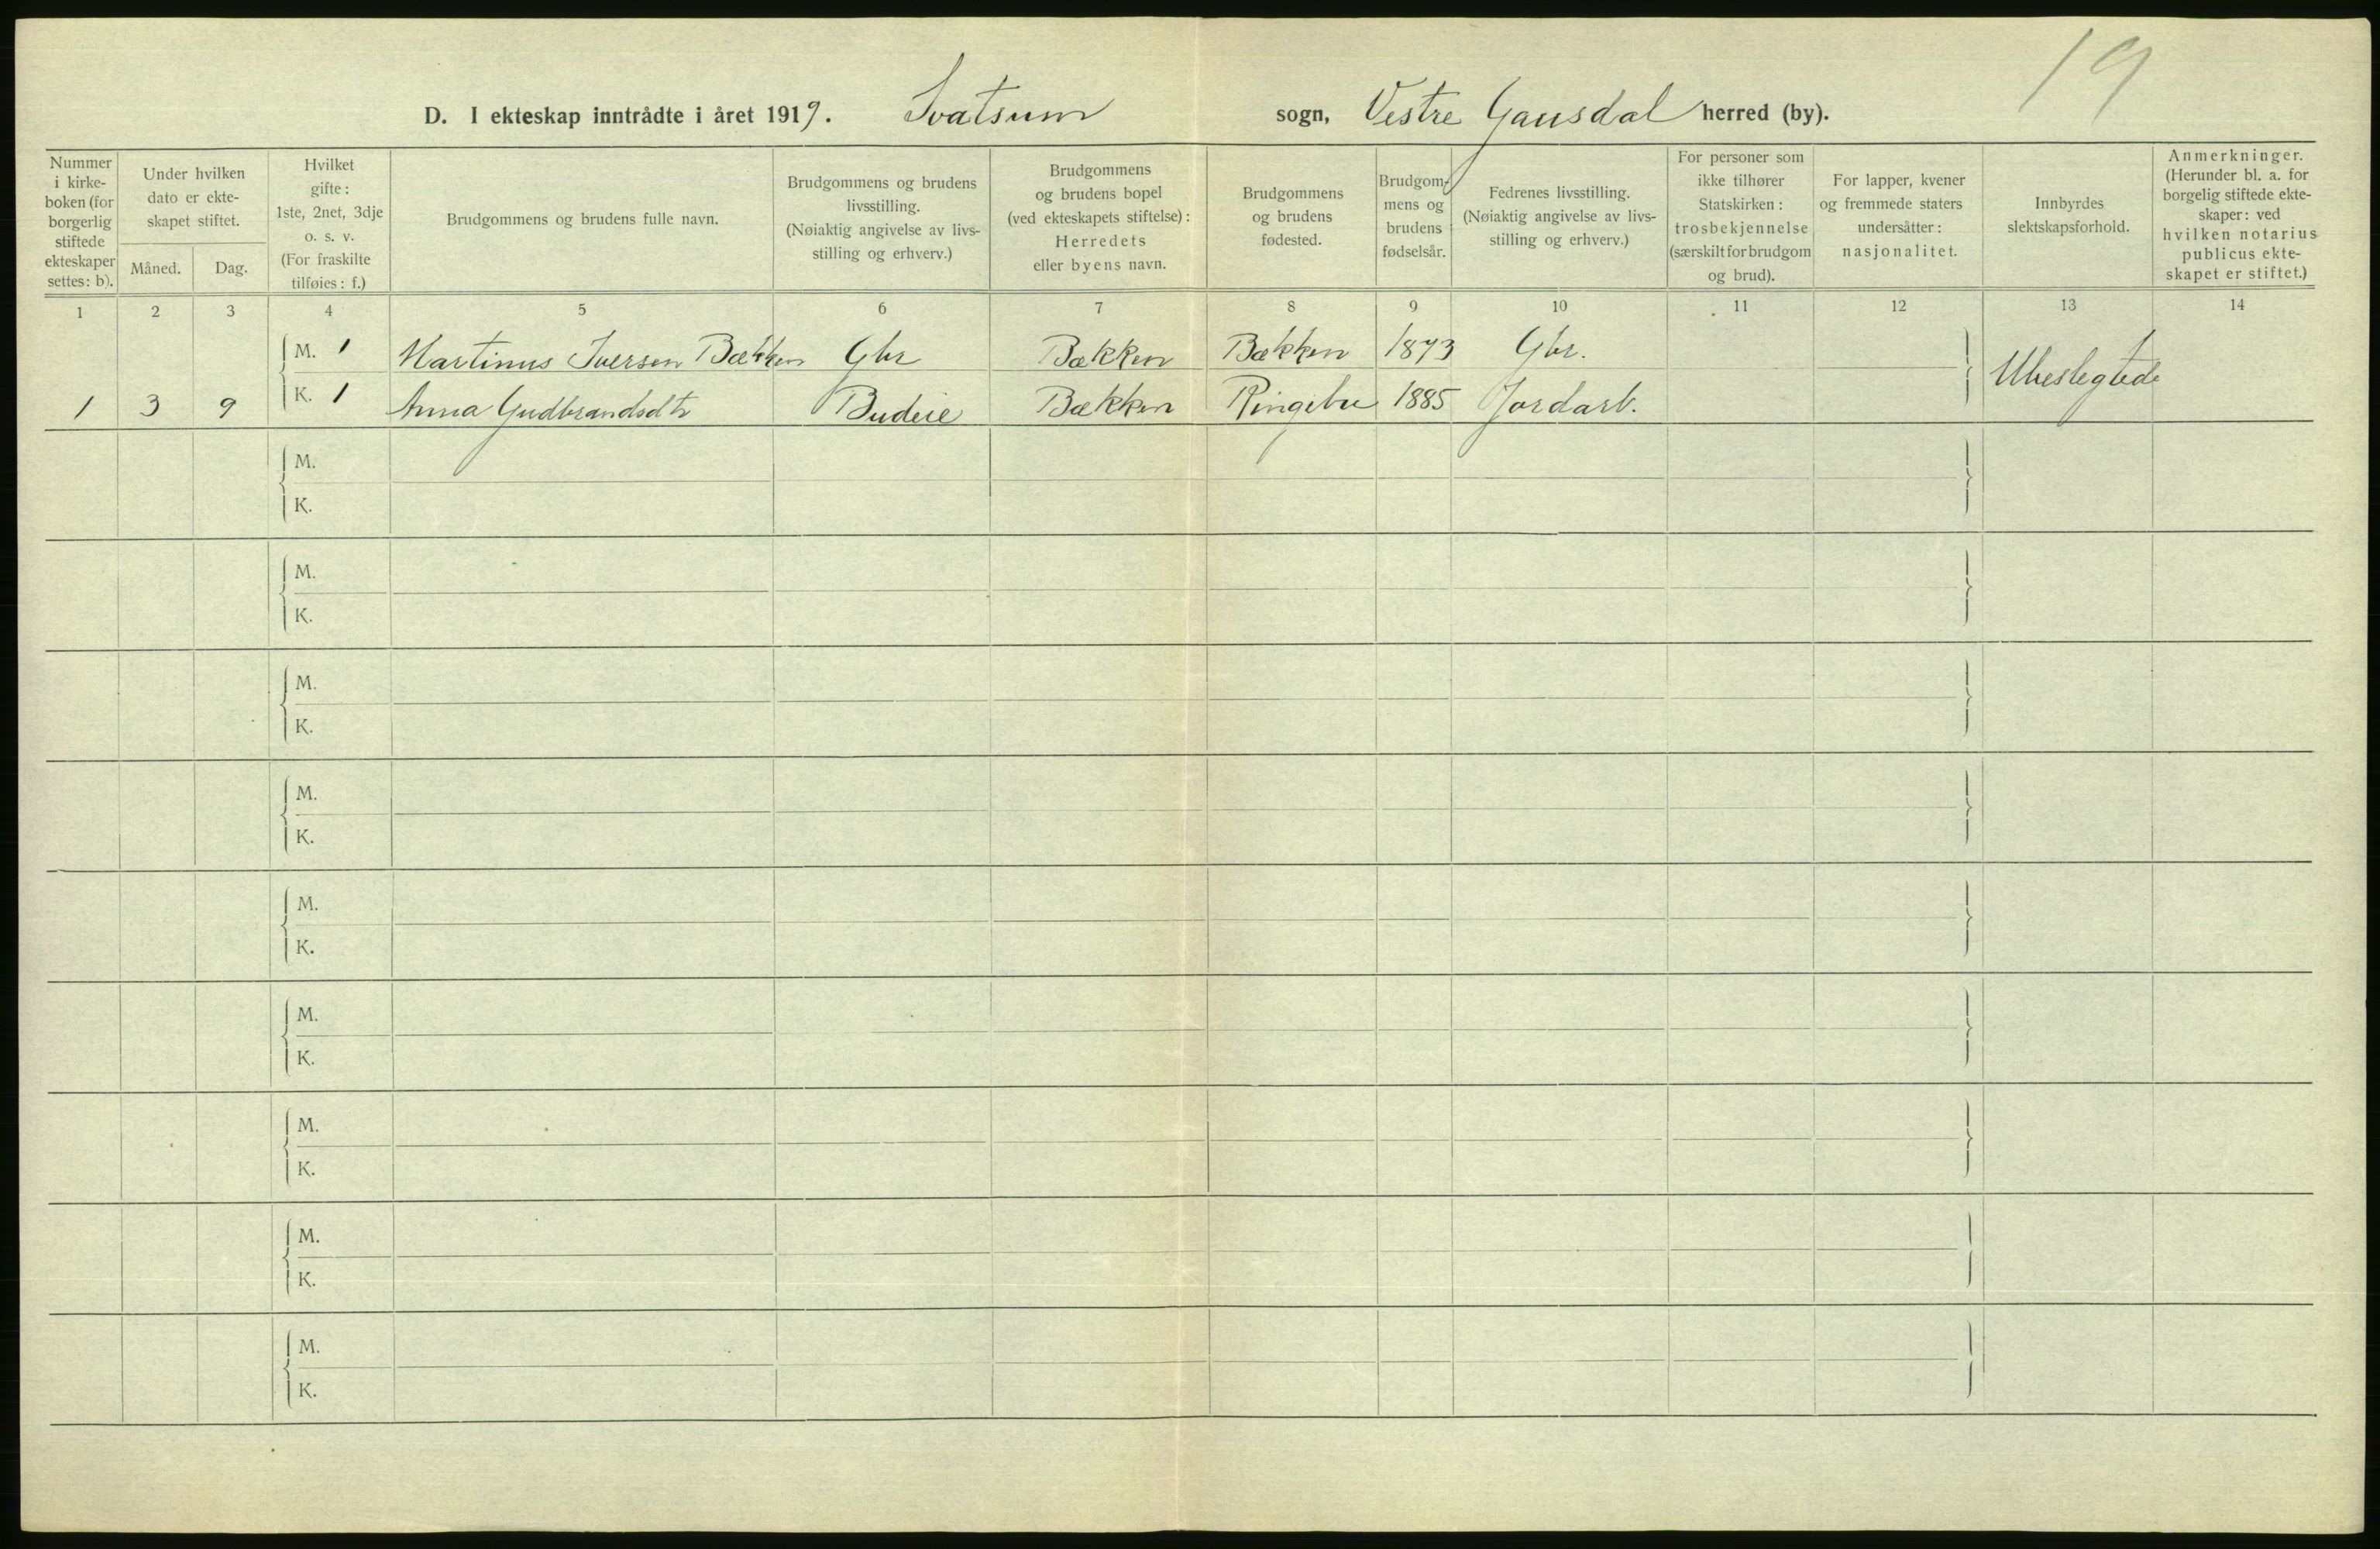 19
D. I ekteskap inntrådte i året 1919. Svatsum sogn, Vestre Gausdal herred (by).
Nummer
i kirke-
boken (for
borgerlig
stiftede
ekteskaper
settes: b).
Under hvilken
dato er ekte-
skapet stiftet.
Måned. Dag.
Hvilket
gifte:
1ste, 2net, 3dje
o. s. v.
(For fraskilte
tilføies: f.)
Brudgommens og brudens fulle navn.
Brudgommens og brudens
livsstilling.
(Nøiaktig angivelse av livs-
stilling og erhverv.)
Brudgommens
og brudens bopel
(ved ekteskapets stiftelse):
Herredets
eller byens navn.
Brudgommens
og brudens
fødested.
Brudgom-
mens og
brudens
fødselsår.
Fedrenes livsstilling.
(Nøiaktig angivelse av livs-
stilling og erhverv.)
For personer som
ikke tilhører
Statskirken:
trosbekjennelse
(særskilt for brudgom
og brud).
For lapper, kvener
og fremmede staters
undersåtter:
nasjonalitet.
Innbyrdes
slektskapsforhold.
Anmerkninger.
(Herunder bl. a. for
borgelig stiftede ekte-
skaper: ved
hvilken notarius
publicus ekte-
skapet er stiftet.)
1 2 3 4 5 6 7 8 9 10 11 12 13 14
M. 1 Martinus Iversen Bækken Gbr Bækken Bækken 1873 Gbr.
Ubeslegtede
1 3 9 K. 1 Anna Gudbrandsdtr Budeie Bækken Ringebu 1885 Jordarb.
M.
K.
M.
K.
M.
K.
M.
K.
M.
K.
M.
K.
M.
K.
M.
K.
M.
K.